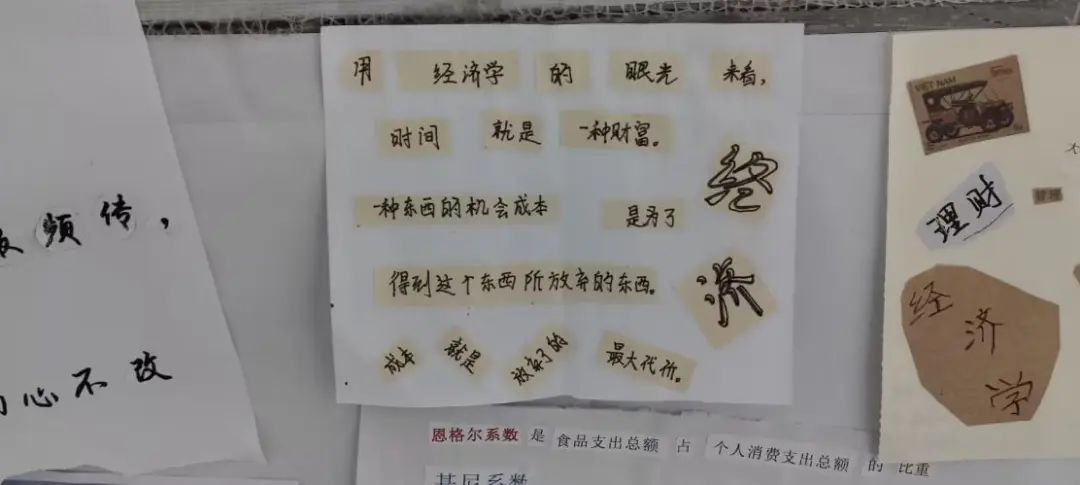 频传，
心不改
用 经济学 的 眼光 来看，
时间 就是 一种财富。
一种东西的机会成本 是为了
得到这个东西所放弃的东西。
成本 就是 放弃了的 最大代价。
经
济
恩格尔系数 是 食品支出总额 占 个人消费支出总额 的 比重
基尼系数
VIET NAM
理财
管理
经
济
学